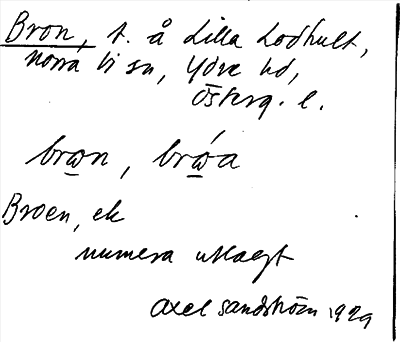 Bron, t. å Lilla Lodhult,
norra Vi sn, Ydre hd,
Österg. l.
brωn, brώa
Broen, ek
numera utlagt
Axel Sandström 1929